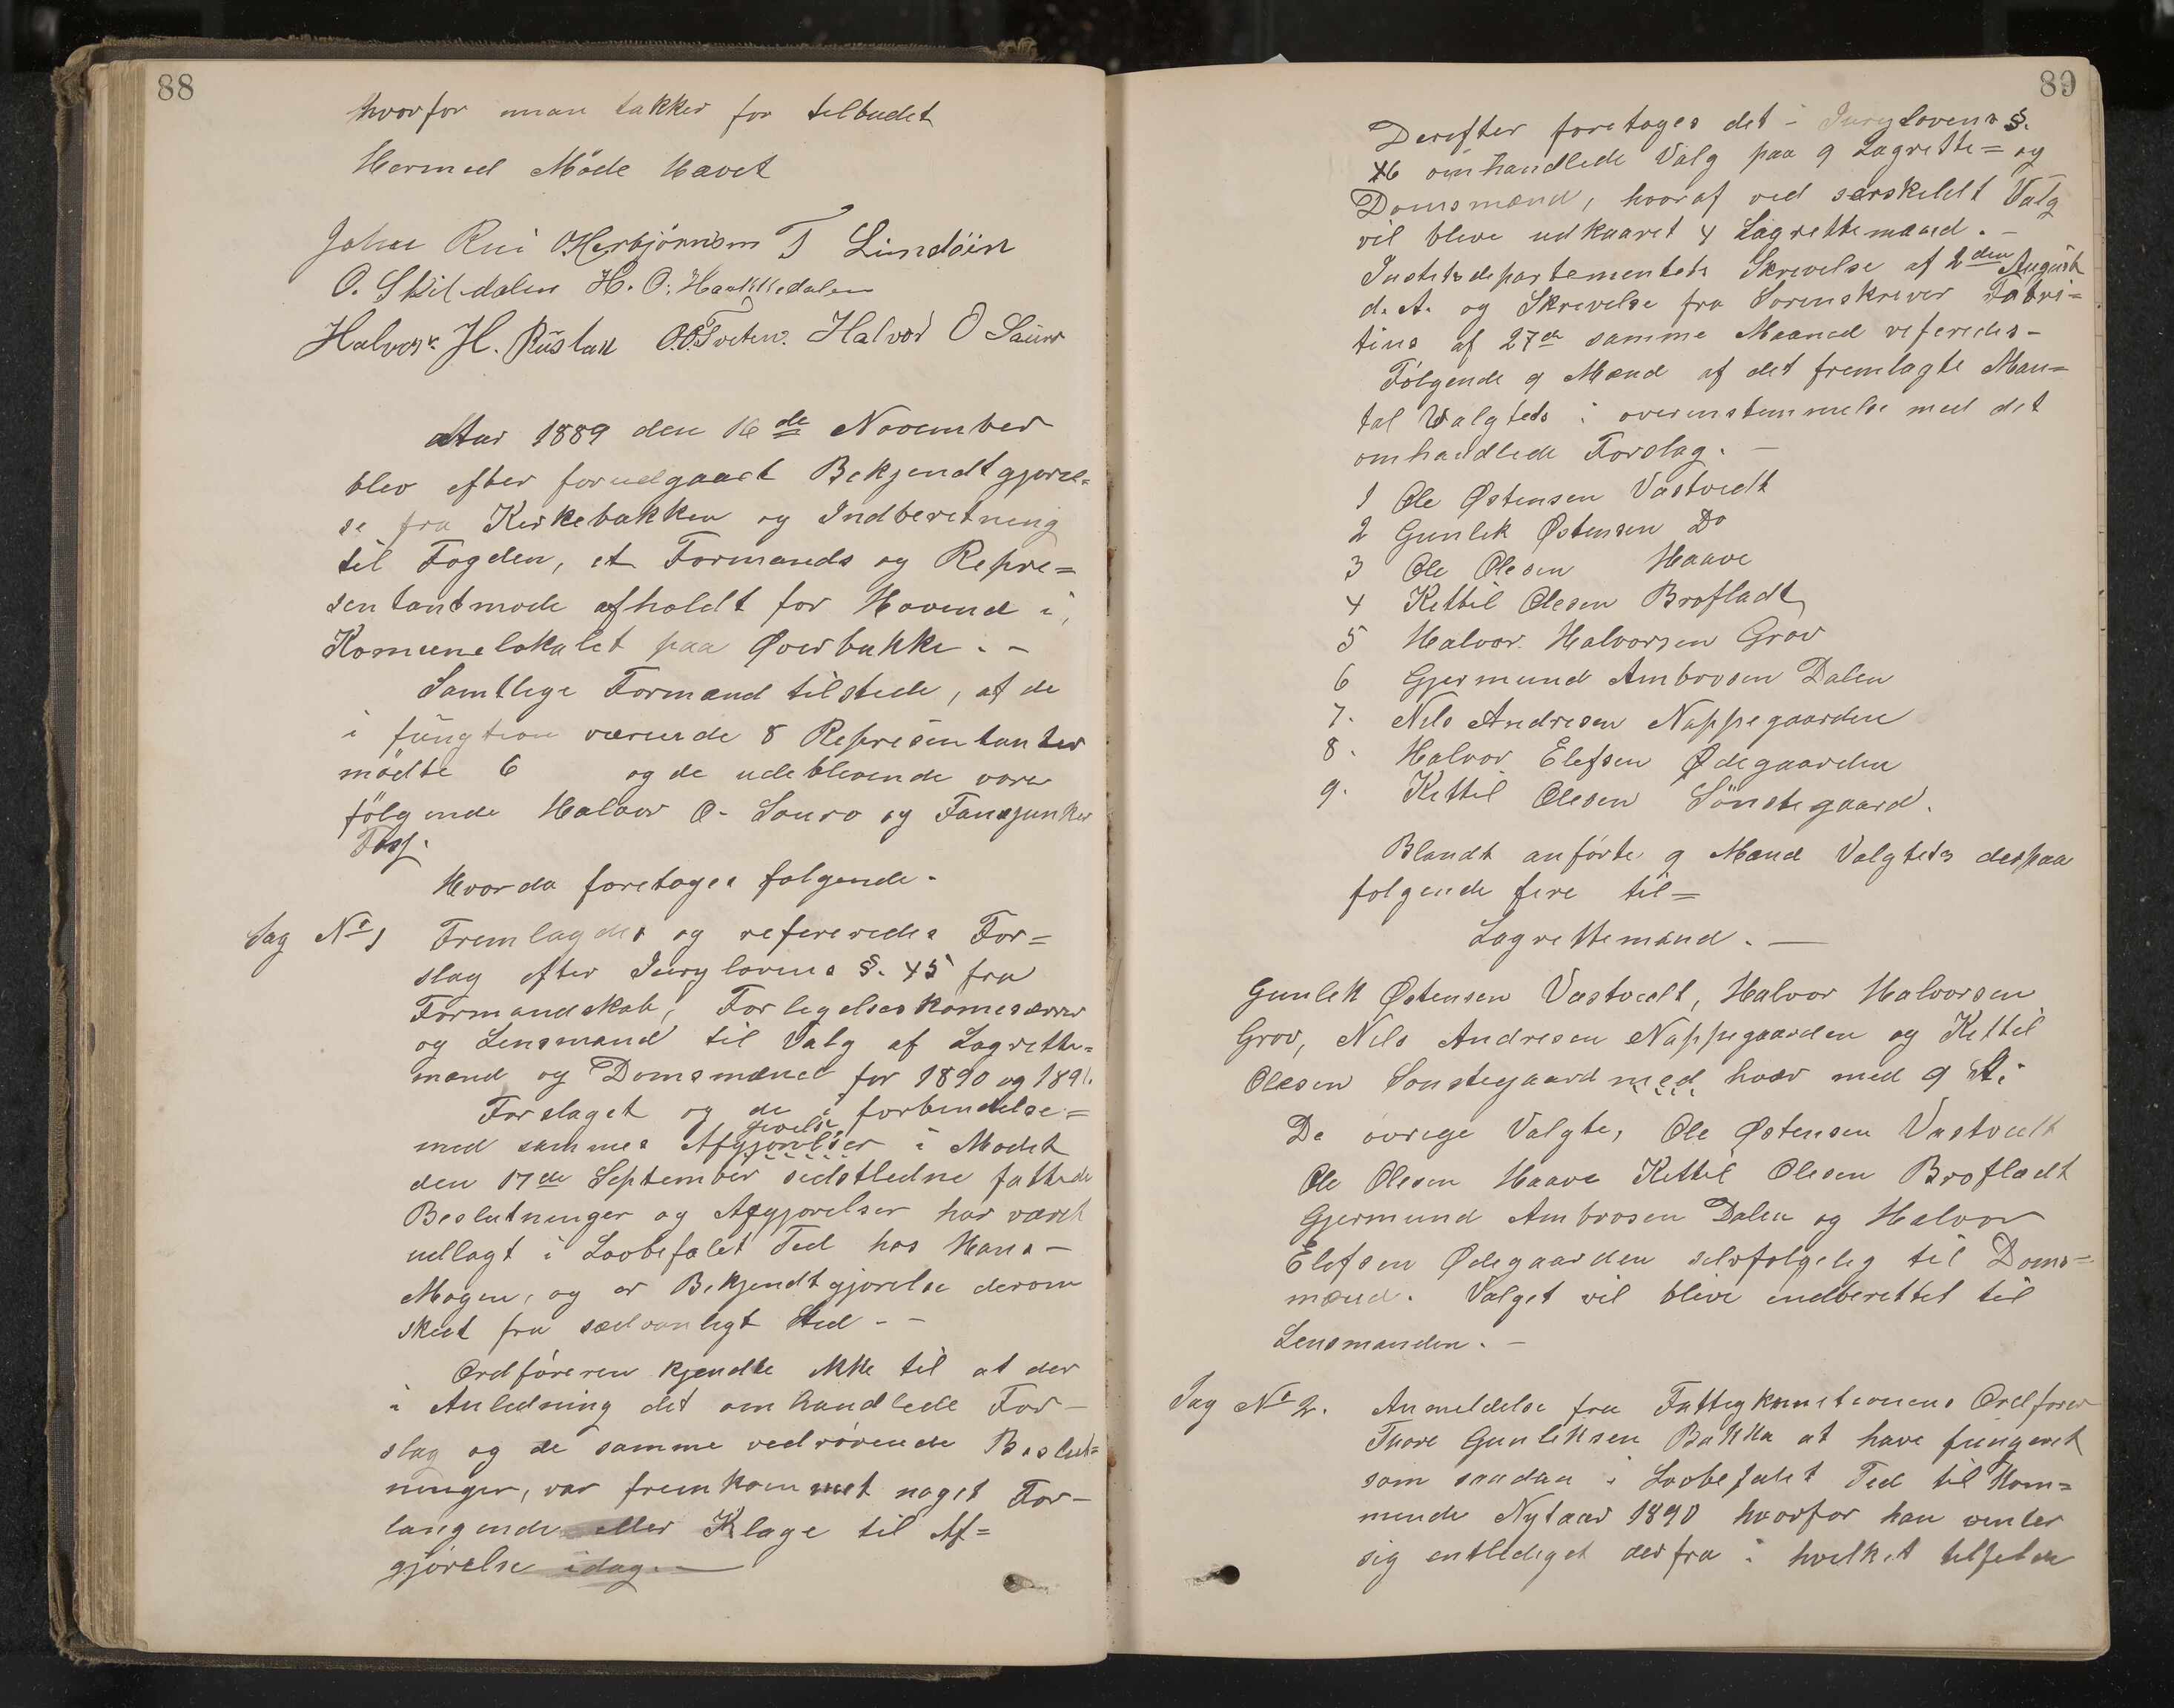 88
hvorfor man takker for tilbudet
Hermed Møde Hævet
John Rui O Herbjörnsen T Lindöin
O. Skildalen H. O. Haakkedalen
Halvor H. Rustan O.O. Tveten. Halvor O Sauro
Aar 1889 den 16de November
blev efter forudgaaet Bekjendtgjørel-
se fra Kirkebakken og Indberetning
til Fogden, et Formands og Repre=
sentantmøde afholdt for Hovind i
Komunelokalet paa Øverbakke. -
Samtlige Formænd tilstede, af de
i fungtion værende 8 Representanter
mödte 6 og de udeblevende vare
følgende Halvor O. Souro og Fanejunker
Foss.
Hvorda foretoges følgende.
Sag No 1 Fremlagdes og refereredes For=
slag efter Jurylovens §. 45 fra
Formandskab, Forligelseskomesærer
og Lensmand til Valg af Lagrette=
mænd og Domsmænd for 1890 og 1891.
Forslaget og de i forbindelse=
med sammes Afgjørelser i Mødet
den 17de September sidstledne fattede
Beslutninger og Afgjørelser har været
udlagt i Lovbefalet Tid hos Hans-
Mogen, og er Bekjendtgjørelse derom
skeet fra sædvanligt Sted - -
Ordføreren kjendte ikke til at der
i Anledning det omhandlede For-
slag og de samme vedrørende Beslut=
ninger, var fremkommet noget For-
langende eller Klage til Af=
gjörelse idag. -
89
Derefter foretoges det i Jurylovens §.
46 omhandlede Valg paa 9 Lagrette= og
Domsmænd, hvoraf ved særskildt Valg
vil blive udkaaret 4 Lagrettemænd. -
Justitsdepartementets Skrivelse af 2den August
d. A. og Skrivelse fra Sorenskriver Fabri=
tius af 27de samme Maaned referedes -
Følgende 9 Mænd af det fremlagte Man=
tal Valgtes i overinstemmelse med det
omhandlede Forslag. -
1 Ole Østensen Vastvedt
2 Gunlek Østensen Do
3 Ole Olesen Haave
4 Kettil Olesen Brofladt
5 Halvor Halvorsen Grov
6 Gjermund Ambrosen Dalen
7. Nils Andresen Nappegaarden
8. Halvor Elefsen Ødegaarden
9. Kittil Olesen Sönstegaard.
Blandt anførte 9 Mænd Valgtes derpaa
følgende fire til=
Lagrettemænd. -
Gunlek Østensen Vastvedt, Halvor Halvorsen
Grov, Nils Andresen Nappegaarden og Kettil
Olesen Sonstegaard med hver med 9 St.
De øvrige Valgte, Ole Østensen Vastvedt
Ole Olesen Haave Kettil Olesen Brofladt
Gjermund Ambrosen Dalen og Halvor
Elefsen Ødegaarden selvfølgelig til Doms-
mænd. Valget vil blive indberettet til
Lensmanden. -
Sag No 2. Anmeldelse fra Fattigkomitionens Ordfører
Thore Gunleksen Bakka at have fungeret
som saadan i Lovbefalet Tid til Kom=
mende Nytaar 1890 hvorfor han venter
sig entlediget derfra i hvilket tilfelde